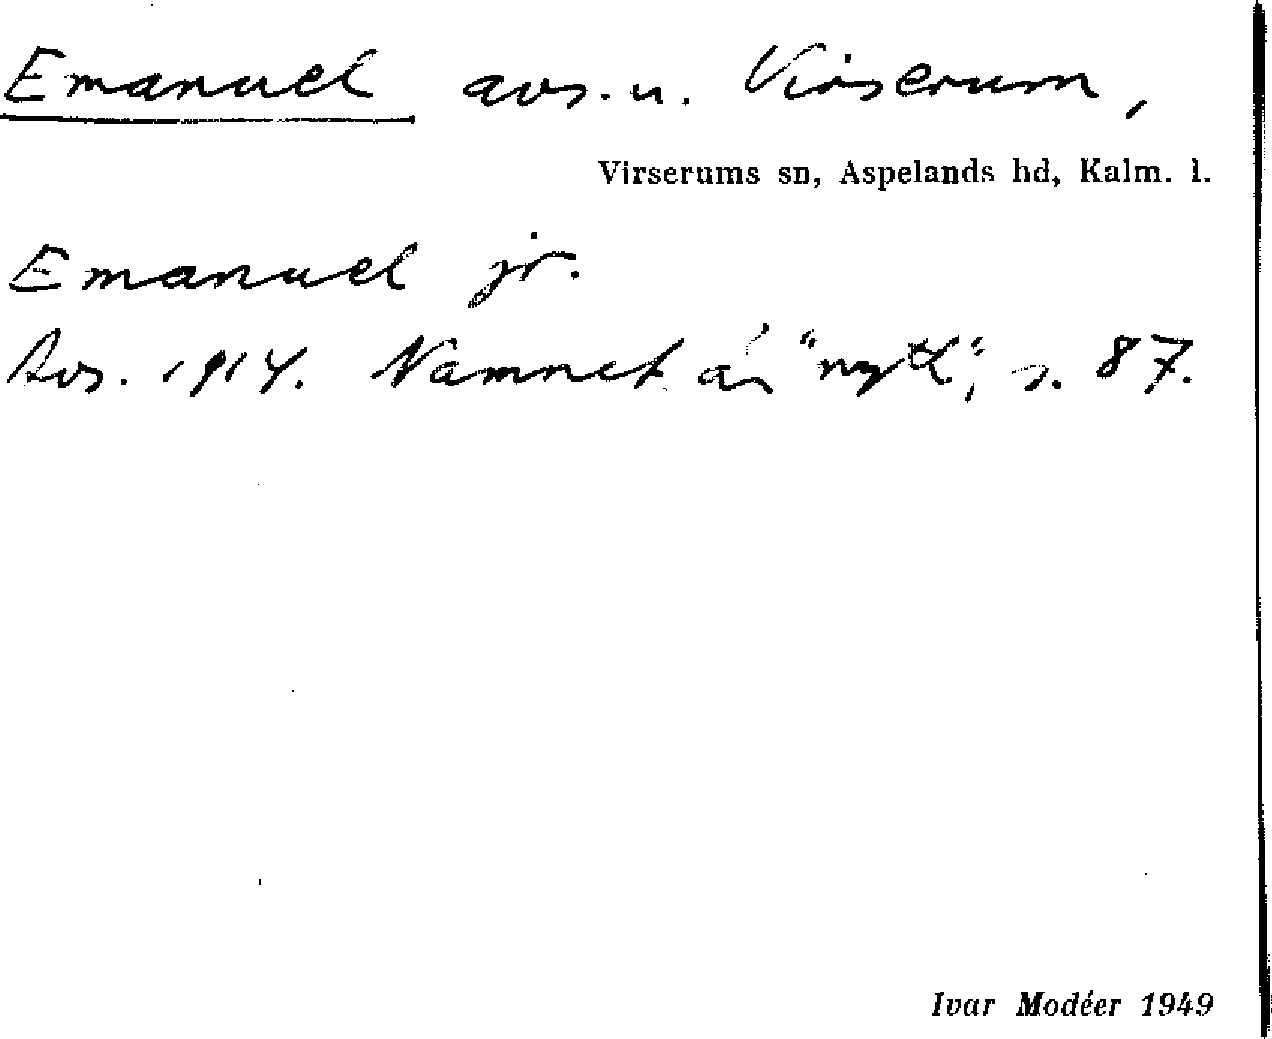 Emanuel avs. u. Virserum,
Virserums sn, Aspelands hd, Kalm. l.
Emanuel jr.
Avs. 1914. Namnet är "nytt", s. 87.
Ivar Modéer 1949